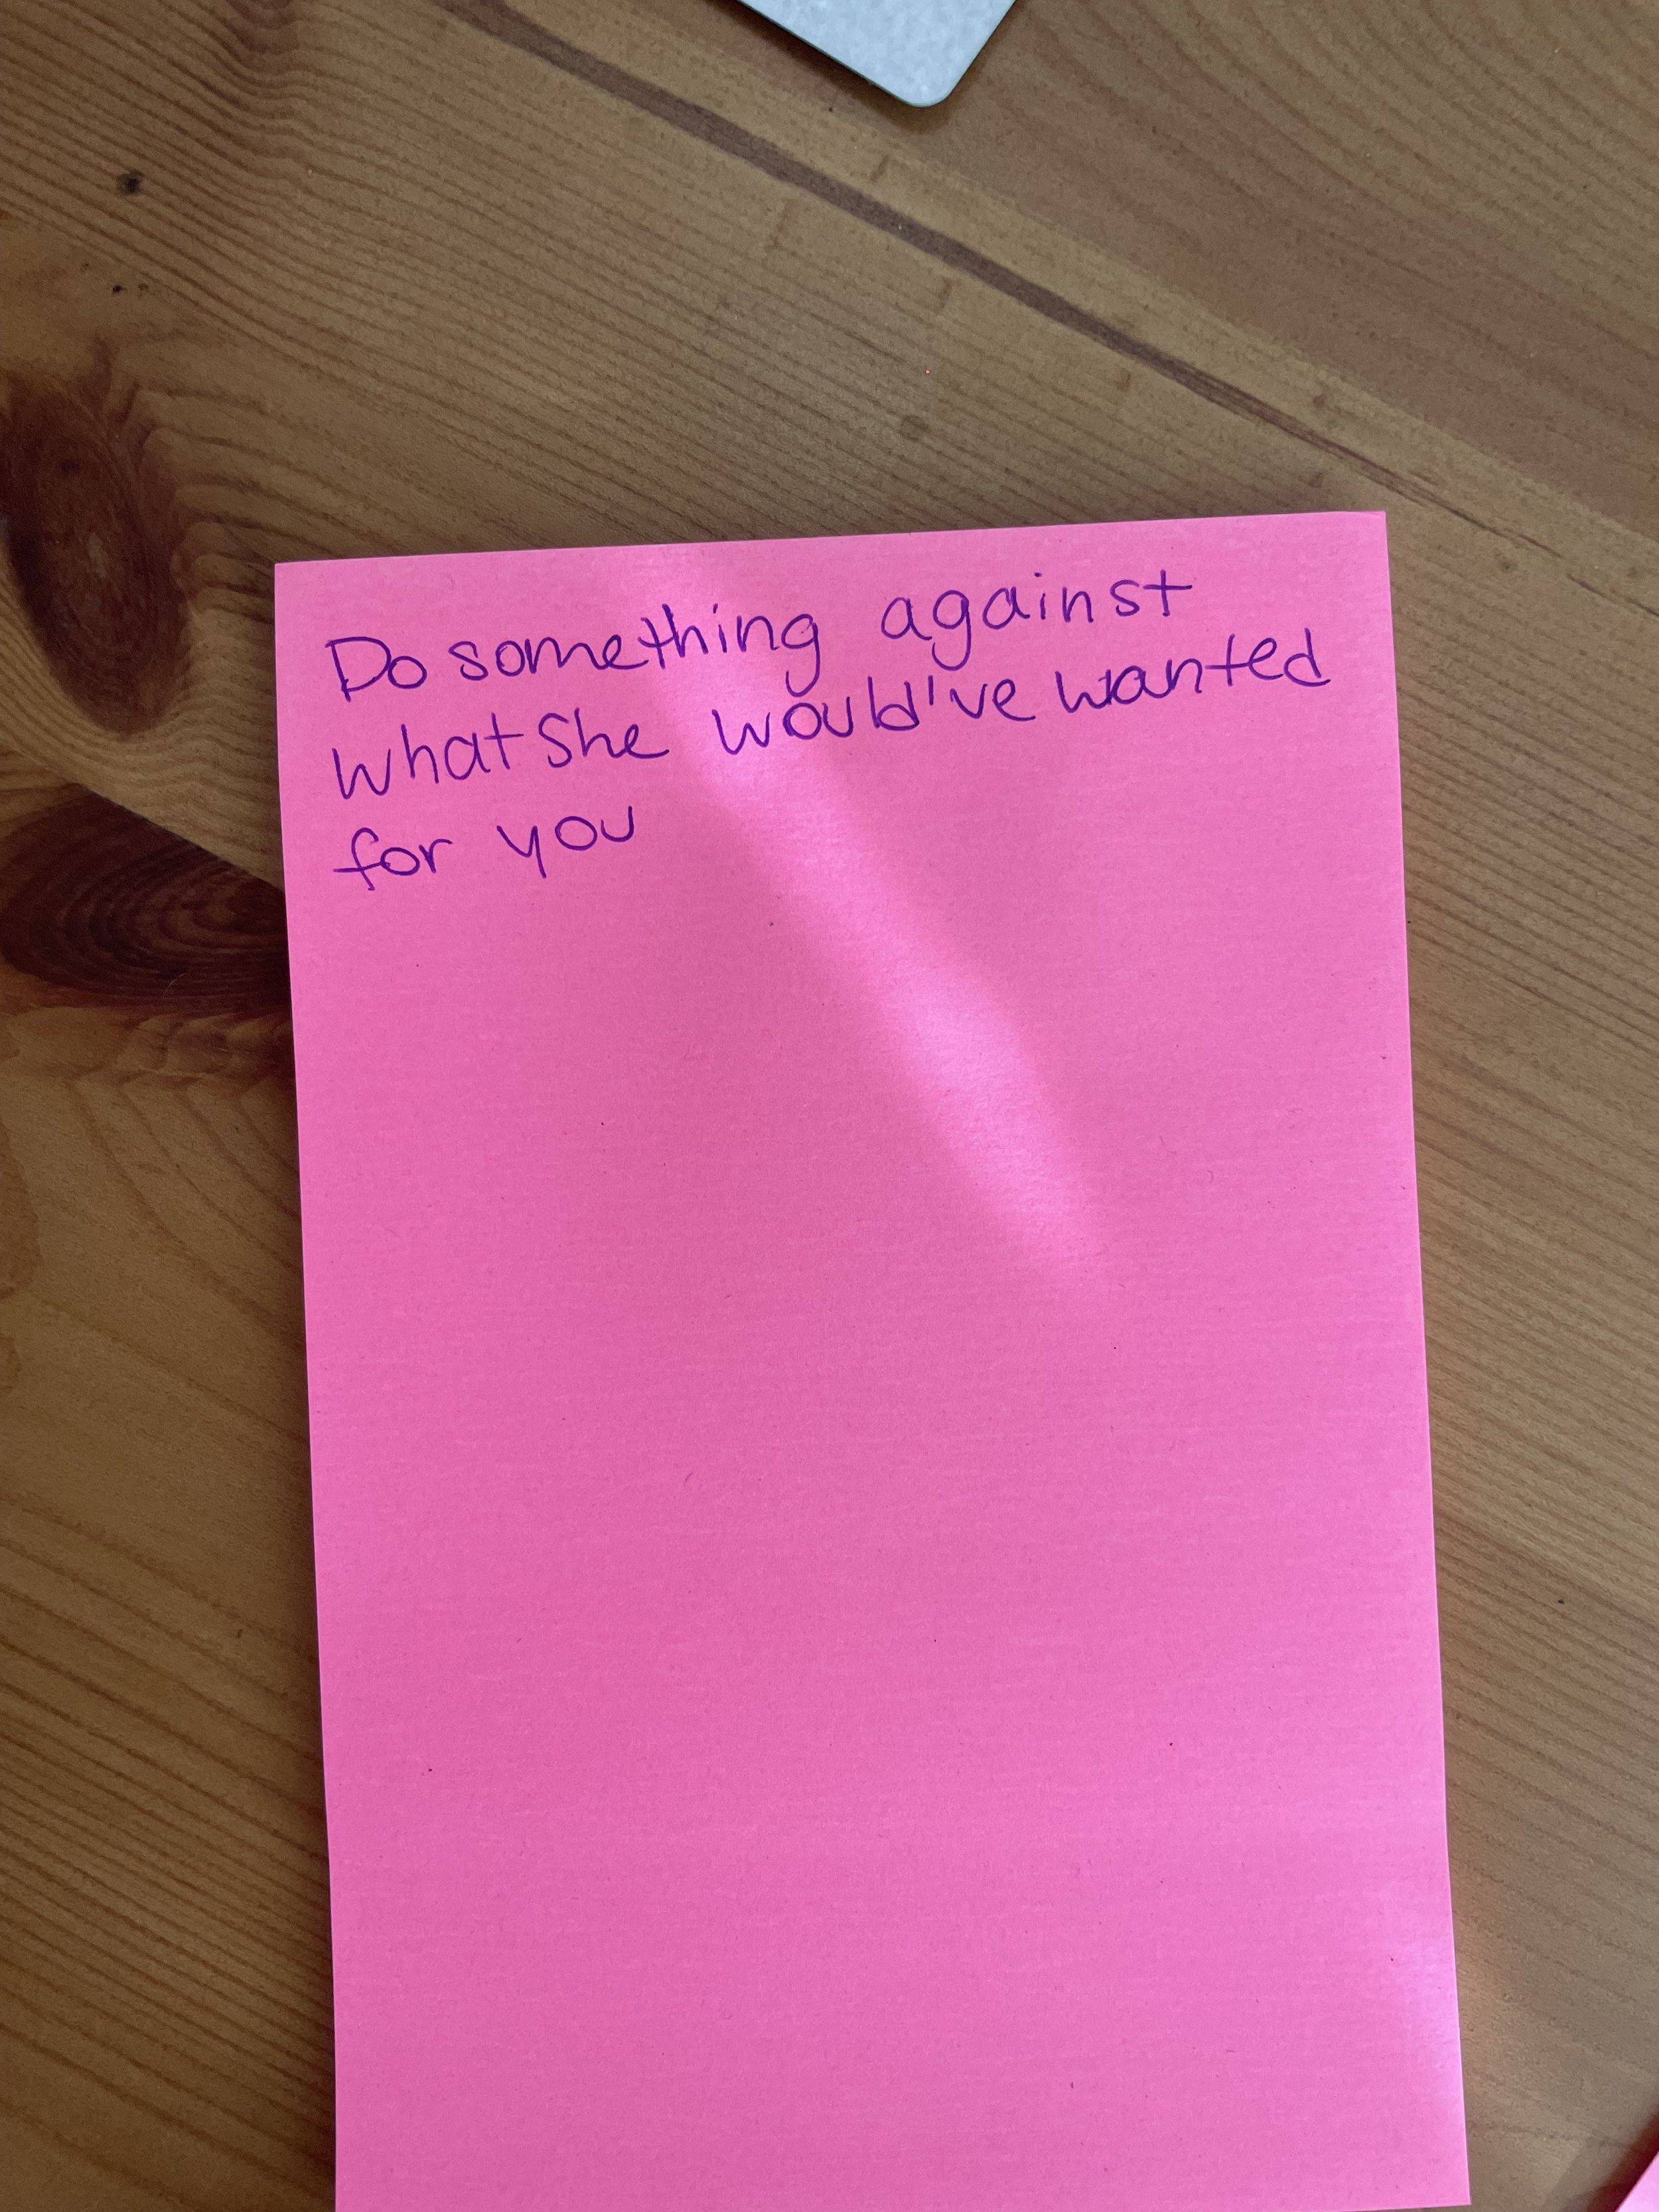 Do something against
what she would've wanted
for you